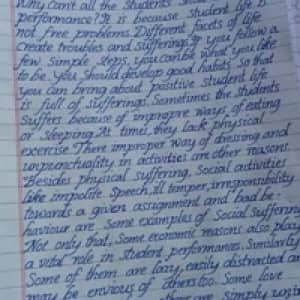 Why can't all the students
performance? It is because student life is
not free problems. Different facets of life
create troubles and sufferings. If you follow a
few simple steps, you can be what you like
to be. You should develop good habits so that
you can bring about positive student life
is full of sufferings. Sometimes the students
suffers because of impropre ways of eating
or sleeping. At times, they lack physical
exercise. There improper way of dressing and
unpunctuality in activities are other reasons.
Besides physical suffering, Social activities
like impolite speech, ill temper, irresponsibility
towards a given assignment and bad be-
haviour are some examples of Social suffering
Not only that, Some economic reasons also play
a vital role in student performances. Similarly
Some of them are lazy, easily distracted an
may be envious of others too. Some love
there are simply